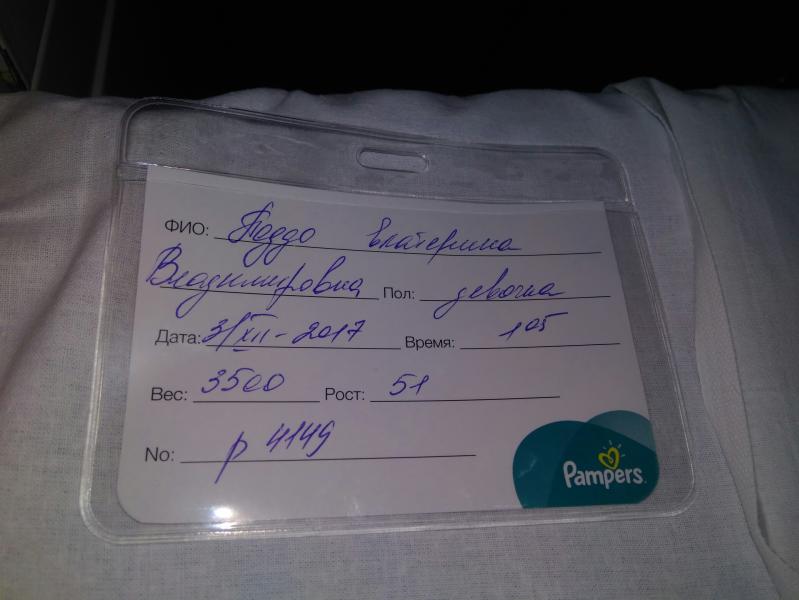 ФИО: Поддо Екатерина
Владимировна Пол: девочка
Дата: 31/XII-2017 Время: 1 05
Вес: 3500 Рост: 51
No: р 4149
Pampers